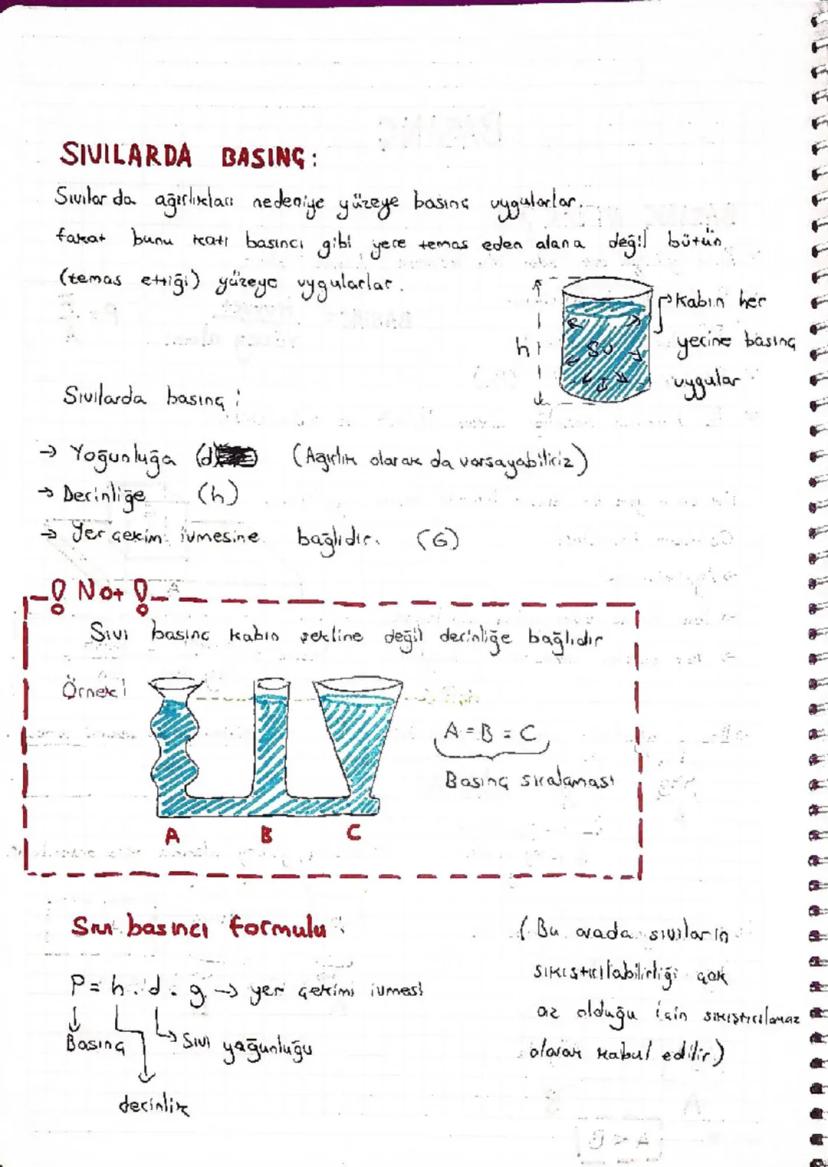 SIVILARDA BASINÇ:
Sıvılar da ağırlıkları nedeniye yüzeye basınç uygularlar.
fakat bunu katı basıncı gibi yere temas eden alana değil bütün
(temas ettiği) yüzeye uygularlar.
h
Su
Kabın her
yerine basınç
uygular
Sıvılarda basınç:
→ Yoğunluğa (d) (Ağırlık olarak da varsayabiliriz)
→ Derinliğe (h)
→ Yer çekim ivmesine bağlıdır. (G)
! Not !
Sıvı basınç kabın şekline değil derinliğe bağlıdır
Örnek!
A = B = C
Basınç sıralaması
A B C
Sıvı basıncı formulu:
P = h . d . g → yer çekimi ivmesi
Basınç
Sıvı yağunluğu
derinlik
(Bu arada sıvıların
sıkıştırılabilirliği çok
az olduğu için sıkıştırılamaz
olarak kabul edilir)